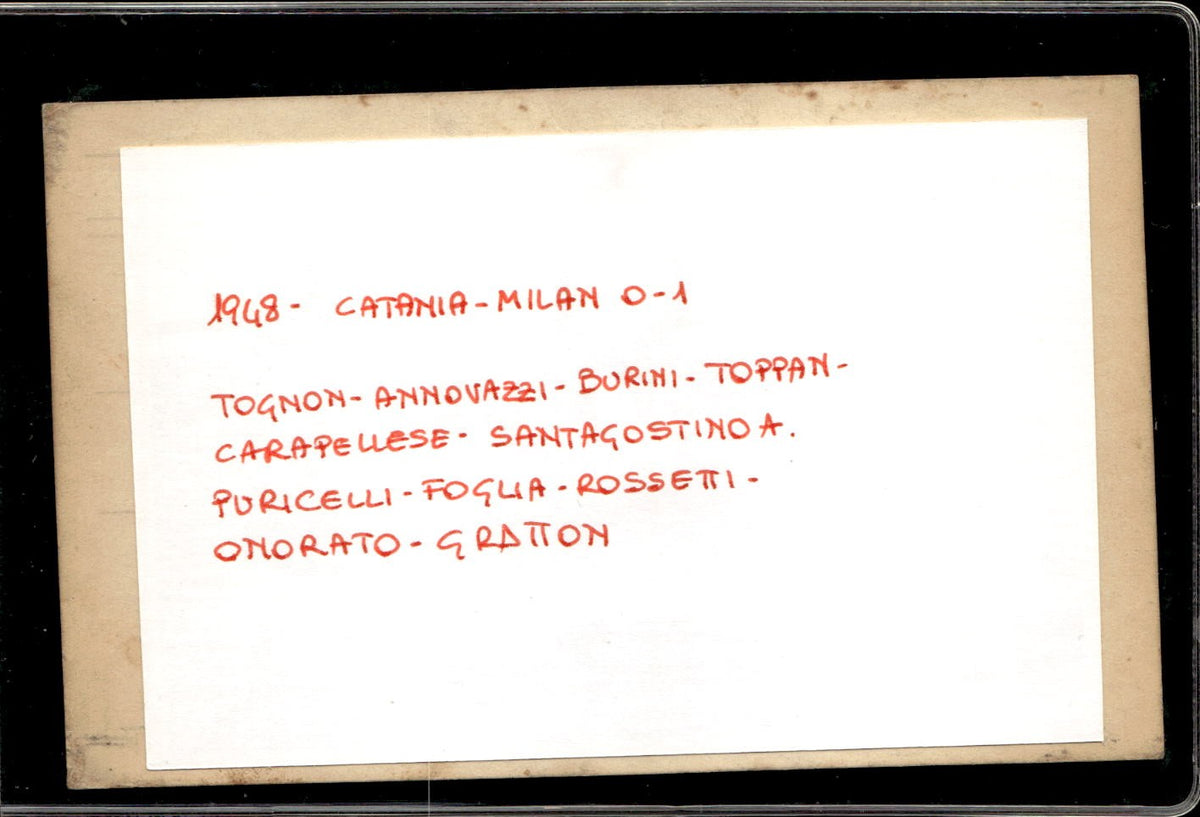 1948 - CATANIA - MILAN 0-1
TOGNON - ANNOVAZZI - BURINI - TOPPAN -
CARAPELLESE - SANTAGOSTINO A.
PURICELLI - FOGLIA - ROSSETTI -
ONORATO - GRATTON